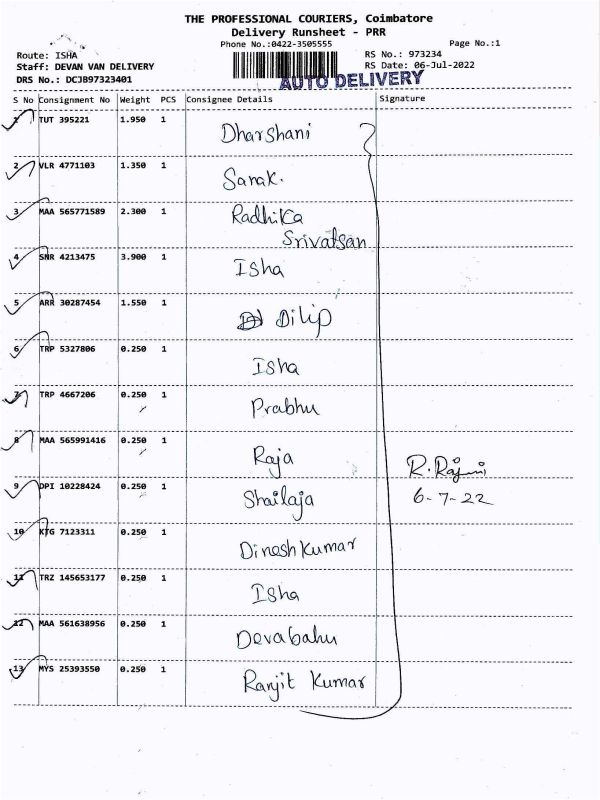 THE PROFESSIONAL COURIERS, Coimbatore
Delivery Runsheet - PRR
Phone No.:0422-3505555
Page No.:1
Route: ISHA
RS No.: 973234
Staff: DEVAN VAN DELIVERY
RS Date: 06-Jul-2022
DRS No.: DCJB97323401
AUTO DELIVERY
S No Consignment No Weight PCS Consignee Details Signature
1 TUT 395221 1.950 1 Dharshani
2 VLR 4771103 1.350 1 Sanak.
3 MAA 565771589 2.300 1 Radhika
Srivatsan
4 SNR 4213475 3.900 1 Isha
5 ARR 30287454 1.550 1 Dilip
6 TRP 5327806 0.250 1 Isha
7 TRP 4667206 0.250 1 Prabhu
8 MAA 565991416 0.250 1 Raja
R. Rajini
9 DPI 10228424 0.250 1 Shailaja 6-7-22
10 KTG 7123311 0.250 1 Dinesh Kumar
11 TRZ 145653177 0.250 1 Isha
12 MAA 561638956 0.250 1 Devabahu
13 MYS 25393550 0.250 1 Ranjit Kumar